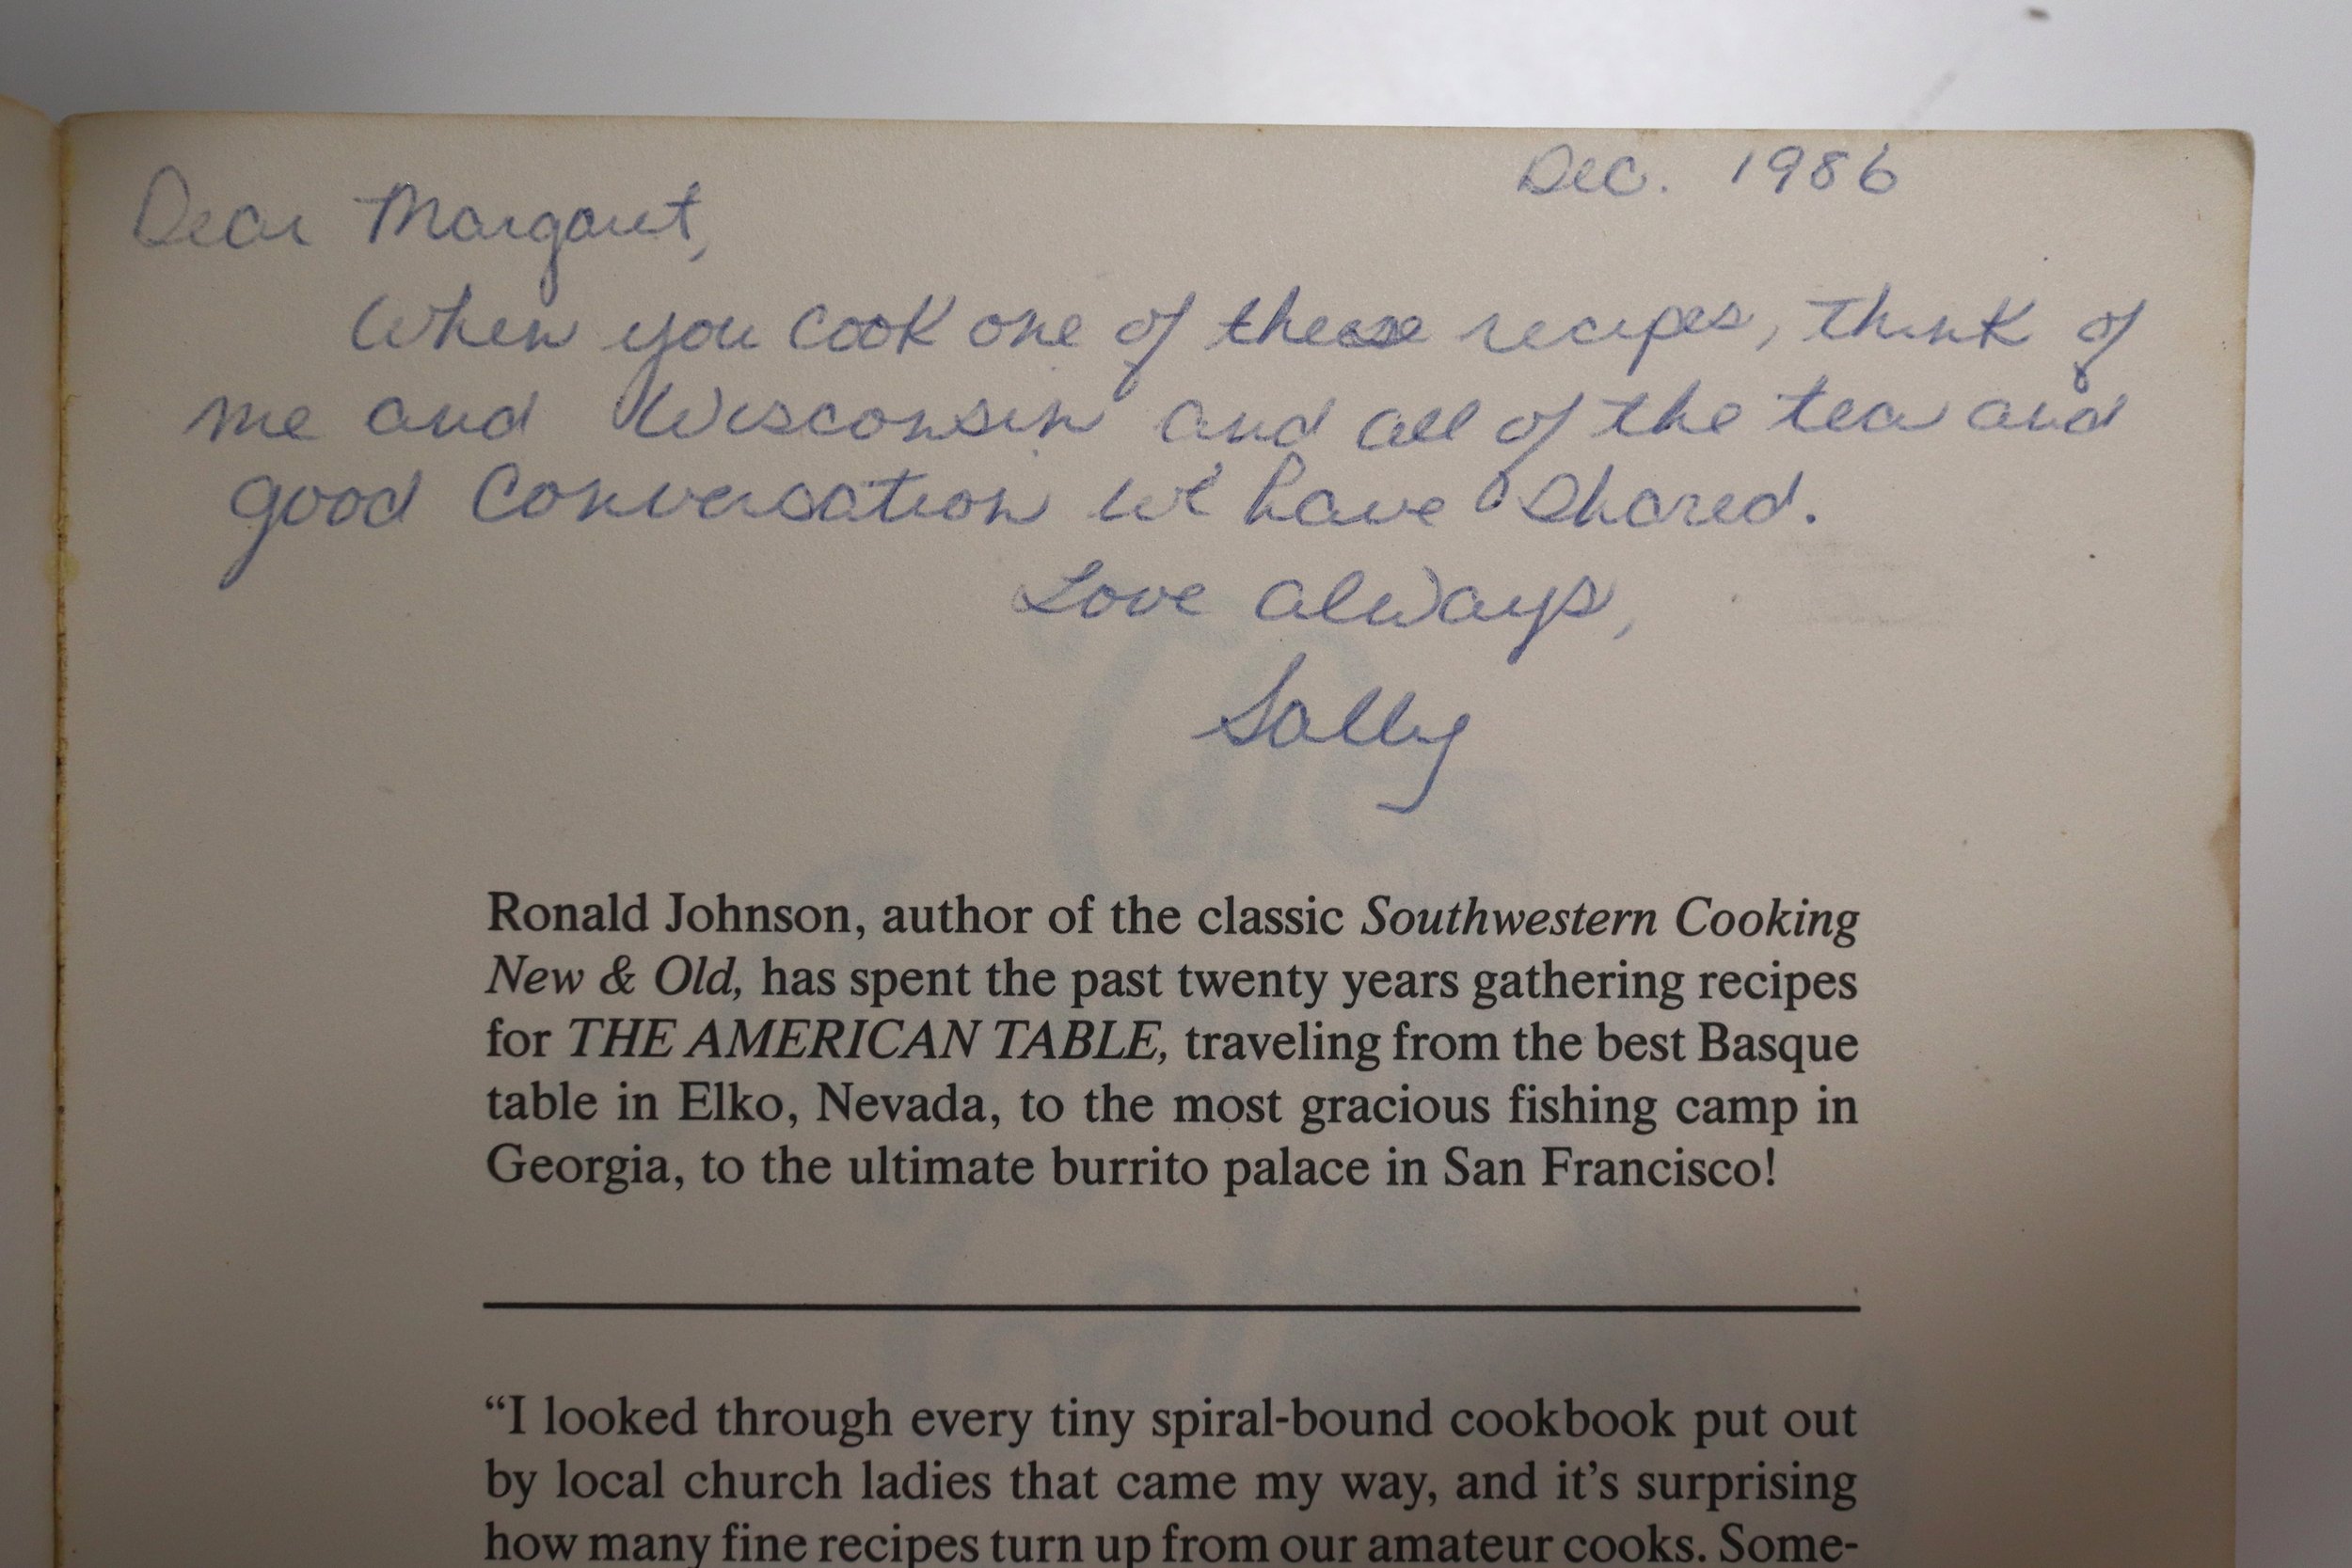 Dec. 1986
Dear Margaret,
When you cook one of these recipes, think of
me and Wisconsin and all of the tea and
good conversation we have shared.
Love always,
Sally
Ronald Johnson, author of the classic Southwestern Cooking
New & Old, has spent the past twenty years gathering recipes
for THE AMERICAN TABLE, traveling from the best Basque
table in Elko, Nevada, to the most gracious fishing camp in
Georgia, to the ultimate burrito palace in San Francisco!
“I looked through every tiny spiral-bound cookbook put out
by local church ladies that came my way, and it’s surprising
how many fine recipes turn up from our amateur cooks. Some-